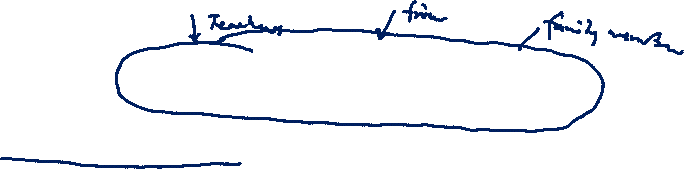 Teachers
family member